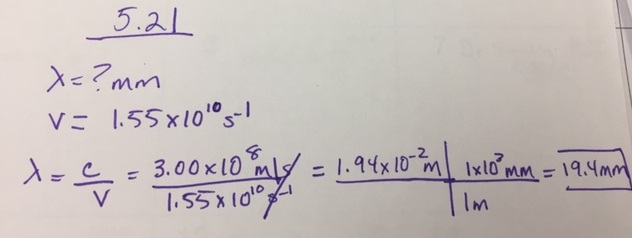 5.21
λ = ? mm
ν = 1.55 x 10¹⁰ s⁻¹
λ = c/ν = 3.00 x 10⁸ m/s / 1.55 x 10¹⁰ s⁻¹ = 1.94 x 10⁻² m | 1 x 10³ mm / 1 m = 19.4 mm